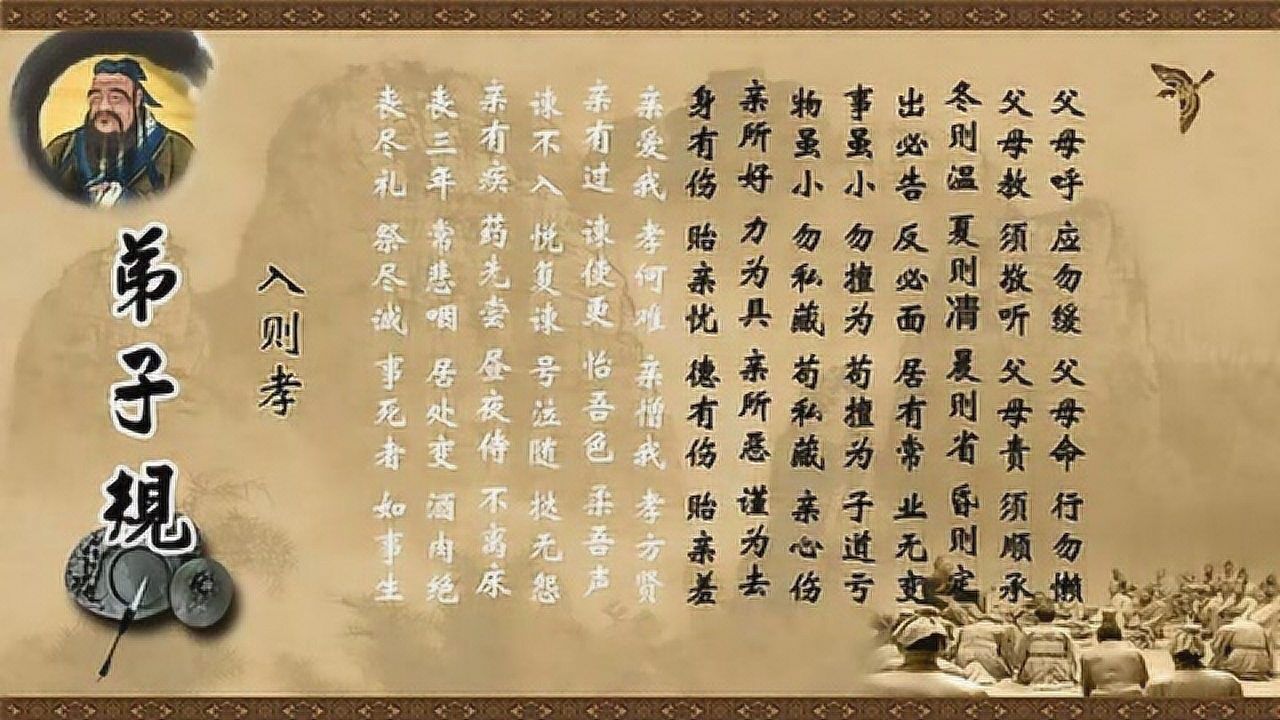 父母呼 应勿缓 父母命 行勿懒
父母教 须敬听 父母责 须顺承
冬则温 夏则凊 晨则省 昏则定
出必告 反必面 居有常 业无变
事虽小 勿擅为 苟擅为 子道亏
物虽小 勿私藏 苟私藏 亲心伤
亲所好 力为具 亲所恶 谨为去
身有伤 贻亲忧 德有伤 贻亲羞
亲爱我 孝何难 亲憎我 孝方贤
亲有过 谏使更 怡吾色 柔吾声
谏不入 悦复谏 号泣随 挞无怨
亲有疾 药先尝 昼夜侍 不离床
丧三年 常悲咽 居处变 酒肉绝
丧尽礼 祭尽诚 事死者 如事生
入则孝
弟子规